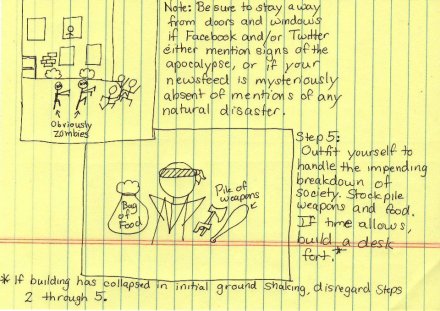 Note: Be sure to stay away
from doors and windows
if Facebook and/or Twitter
either mention signs of the
apocalypse, or if your
newsfeed is mysteriously
absent of mentions of any
natural disaster.
Obviously
Zombies
Step 5:
Outfit yourself to
handle the impending
breakdown of
society. Stockpile
weapons and food.
If time allows,
build a desk
fort.*
Pile of
weapons
Bag
of
Food
* If building has collapsed in initial ground shaking, disregard steps
2 through 5.